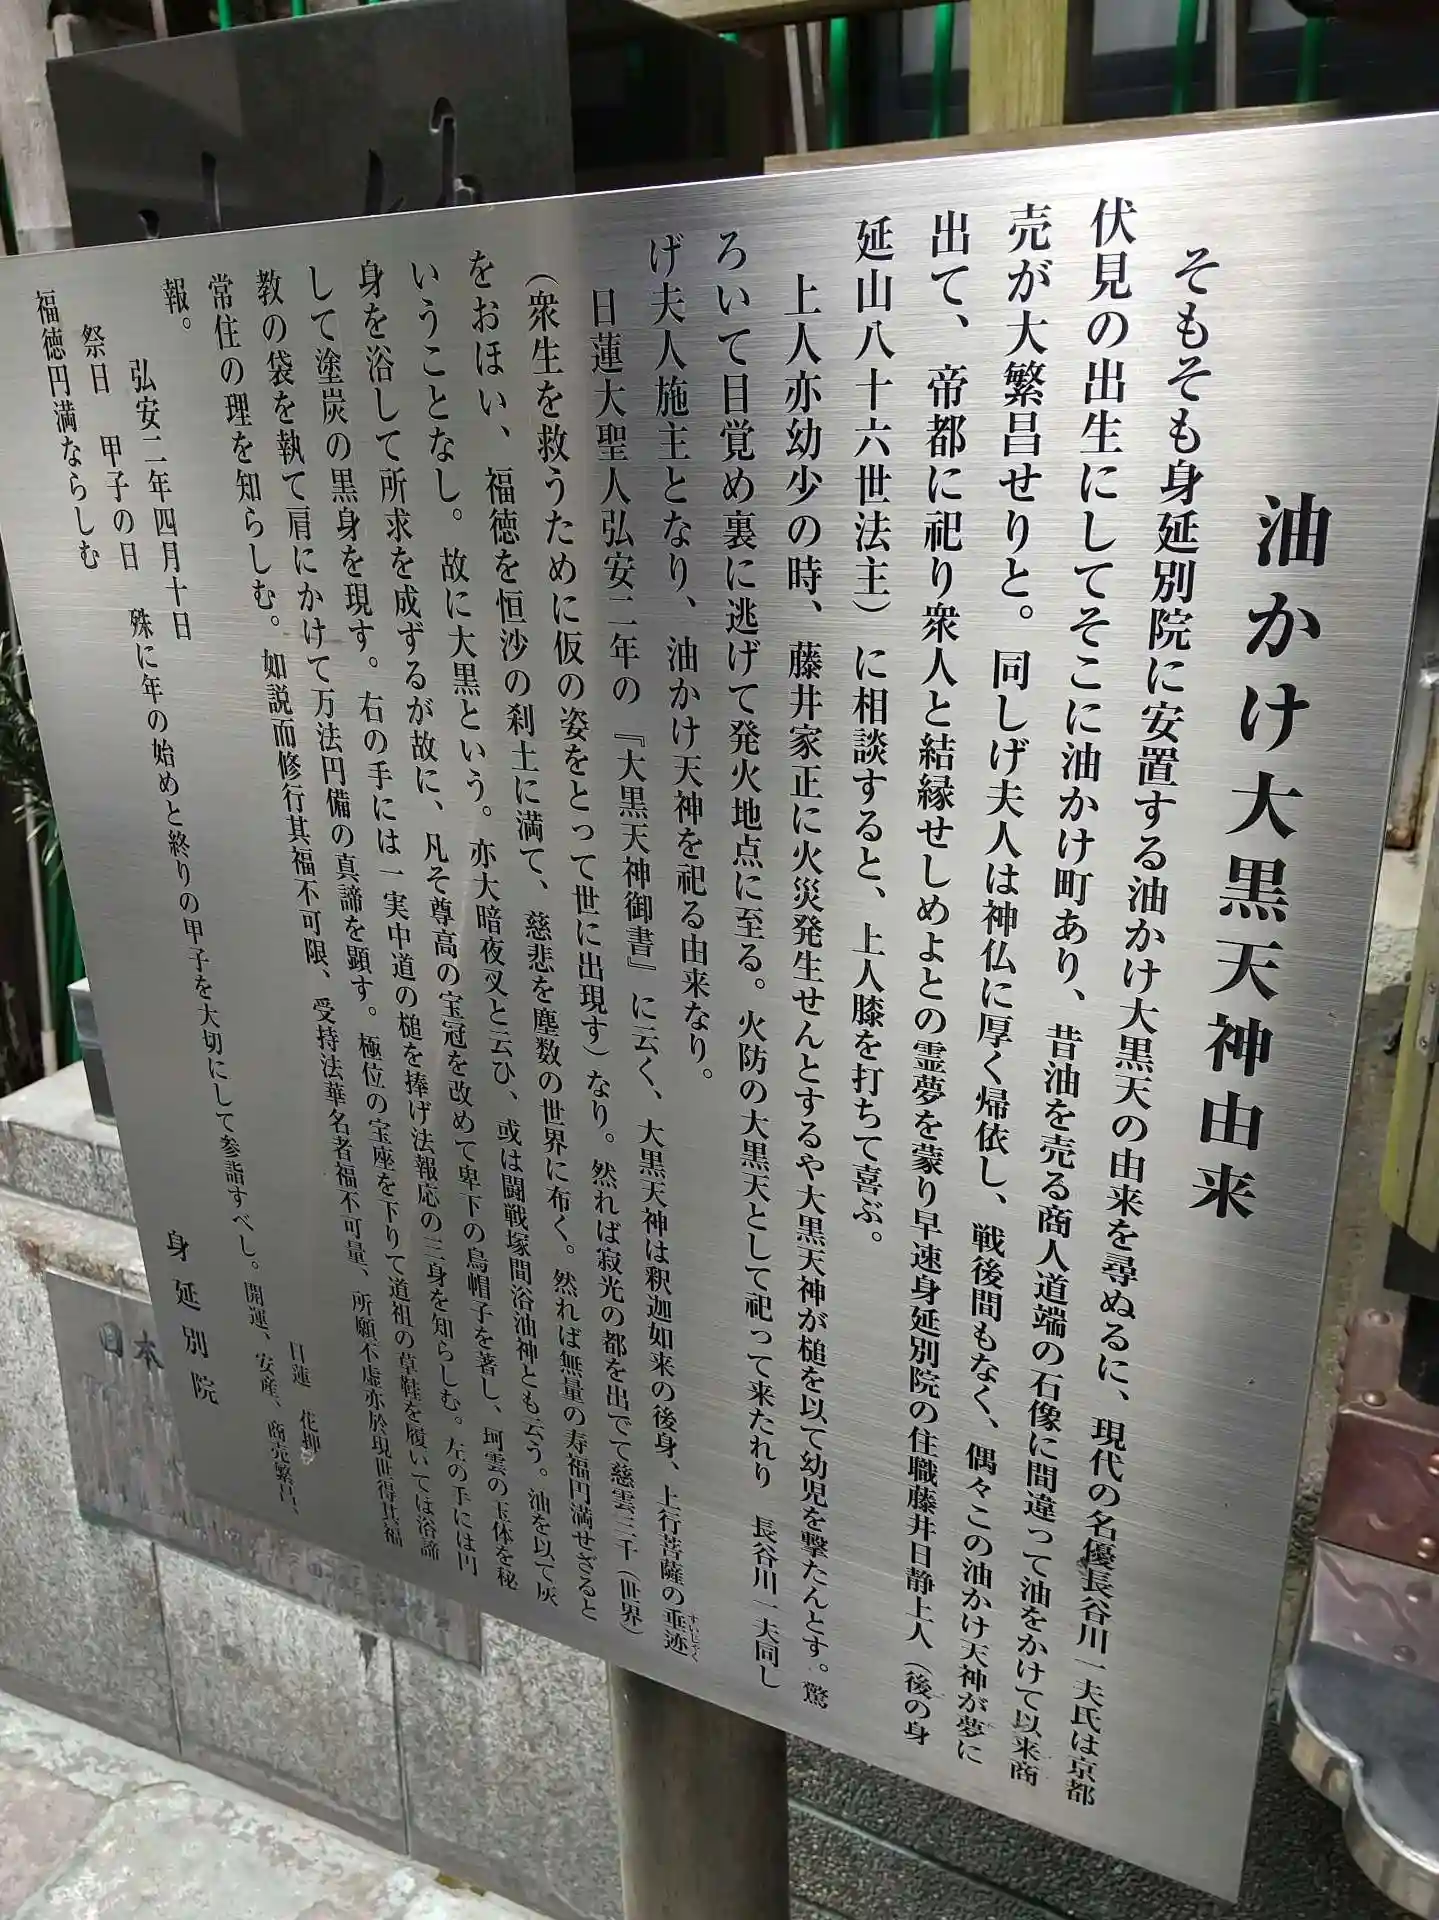 油かけ大黒天神由来
そもそも身延別院に安置する油かけ大黒天の由来を尋ぬるに、現代の名優長谷川一夫氏は京都
伏見の出生にしてそこに油かけ町あり、昔油を売る商人道端の石像に間違って油をかけて以来商
売が大繁昌せりと。同しげ夫人は神仏に厚く帰依し、戦後間もなく、偶々この油かけ天神が夢に
出て、帝都に祀り衆人と結縁せしめよとの霊夢を蒙り早速身延別院の住職藤井日静上人（後の身
延山八十六世法主）に相談すると、上人膝を打ちて喜ぶ。
上人亦幼少の時、藤井家正に火災発生せんとするや大黒天神が槌を以て幼児を撃たんとす。驚
ろいて目覚め裏に逃げて発火地点に至る。火防の大黒天として祀って来たれり　長谷川一夫同し
げ夫人施主となり、油かけ天神を祀る由来なり。
日蓮大聖人弘安二年の『大黒天神御書』に云く、大黒天神は釈迦如来の後身、上行菩薩の垂迹
すいじゃく
（衆生を救うために仮の姿をとって世に出現す）なり。然れば寂光の都を出でて慈雲三千（世界）
をおほい、福徳を恒沙の刹土に満て、慈悲を塵数の世界に布く。然れば無量の寿福円満せざると
いうことなし。故に大黒という。亦大暗夜叉と云ひ、或は闘戦塚間浴油神とも云う。油を以て灰
身を浴して所求を成ずるが故に、凡そ尊高の宝冠を改めて卑下の烏帽子を著し、珂雲の玉体を秘
して塗炭の黒身を現す。右の手には一実中道の槌を捧げ法報応の三身を知らしむ。左の手には円
教の袋を執て肩にかけて万法円備の真諦を顕す。極位の宝座を下りて道祖の草鞋を履いては浴諦
常住の理を知らしむ。如説而修行其福不可限、受持法華名者福不可量、所願不虚亦於現世得其福
報。
弘安二年四月十日　日蓮　花押
祭日　甲子の日　殊に年の始めと終りの甲子を大切にして参詣すべし。開運、安産、商売繁昌、
福徳円満ならしむ
身延別院
日本